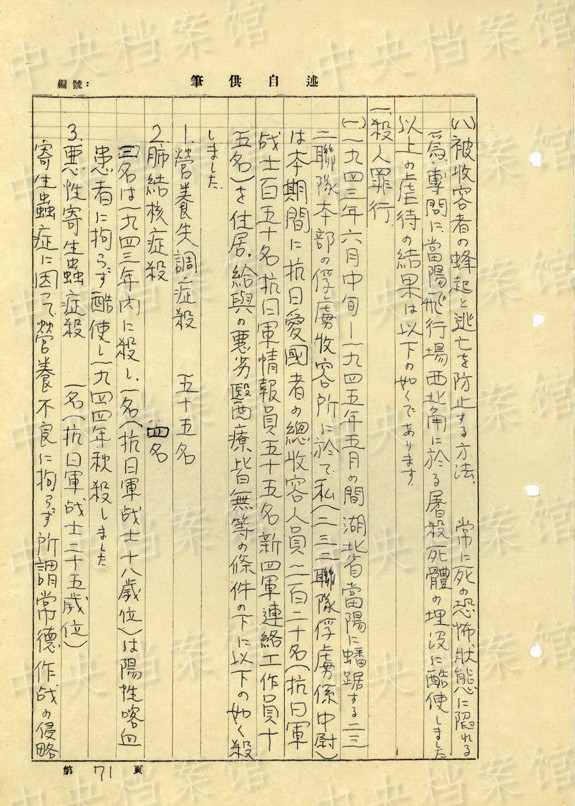 編號：
筆供自述
(八)被收容者の蜂起と逃亡を防止する方法、常に死の恐怖狀態に陥れる
爲、專問に當陽飛行場西北角に於る屠殺死體の埋沒に酷使しました
以上の虐待の結果は以下の如くであります。
一、殺人罪行、
(一)一九四三年六月中旬ー一九四五年五月の間湖北省當陽に蟠踞する二三
二聯隊本部の俘虜收容所に於て、私(二三二聯隊俘虜係中尉)
は本期間に抗日愛國者の總收容人員二百二十名(抗日軍
战士百五十名抗日軍情報員五十五名新四軍連絡工作員十
五名)を住居、給與の悪劣醫療皆無等の條件の下に以下の如く殺
しました、
1.營養失調症殺 五十五名
2.肺結核症殺 四名
三名は一九四三年內に殺し、一名(抗日軍战士十八歲位)は陽性喀血
患者に拘らず酷使し一九四四年秋殺しました
3.悪性寄生蟲症殺 一名(抗日軍战士二十五歲位)
寄生蟲症に因って營養不良に拘らず所謂常德作战の侵略
第 71 頁
中央档案馆